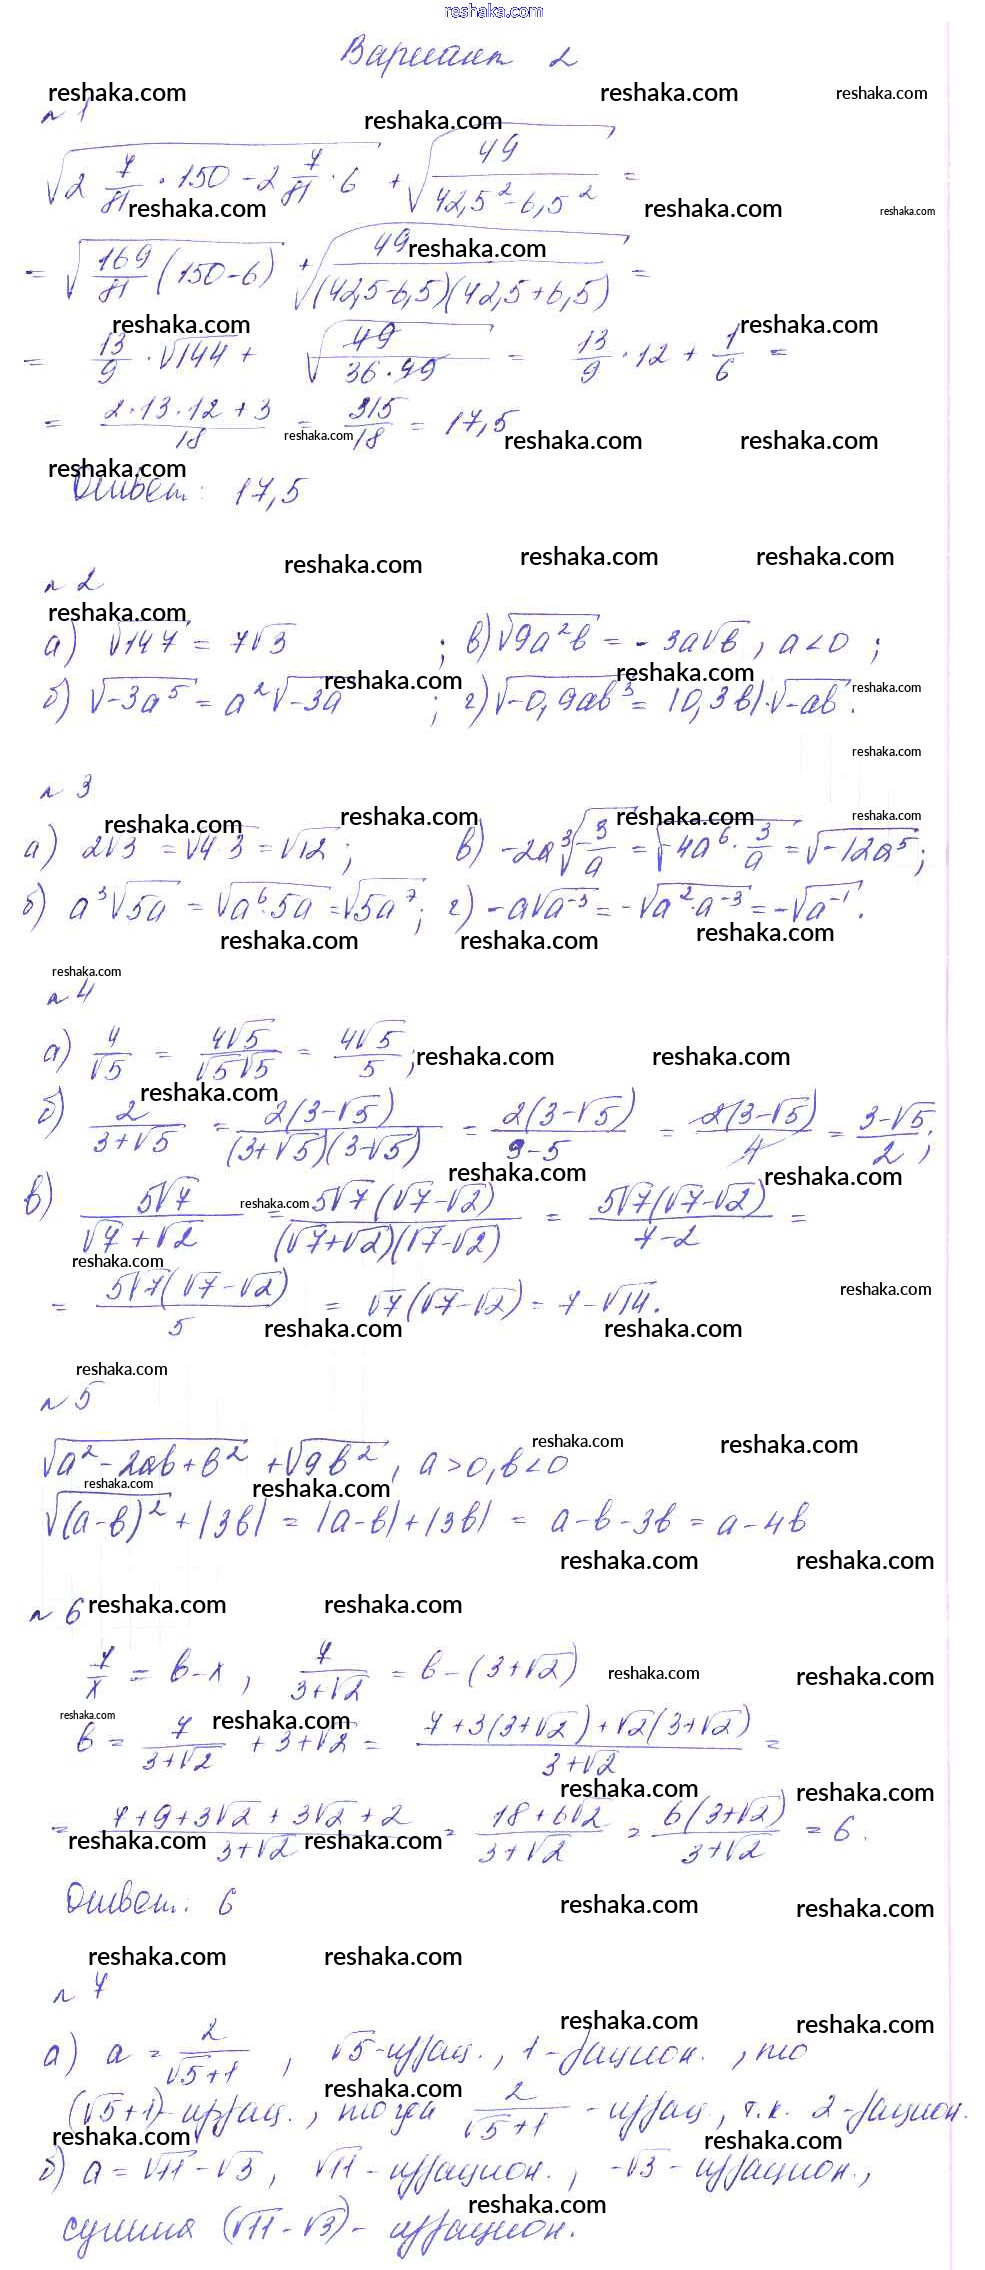 reshaka.com
Вариант 2
reshaka.com reshaka.com reshaka.com
n 1 reshaka.com
√(2 7/81 · 150 - 2 7/81 · 6) + √(49/(42,5² - 6,5²)) =
reshaka.com reshaka.com reshaka.com
= √(169/81 (150 - 6)) + √(49/((42,5 - 6,5)(42,5 + 6,5))) =
reshaka.com
reshaka.com reshaka.com
= 13/9 · √144 + √(49/(36 · 49)) = 13/9 · 12 + 1/6 =
= (2 · 13 · 12 + 3)/18 = 315/18 = 17,5
reshaka.com reshaka.com reshaka.com
reshaka.com
Ответ: 17,5
reshaka.com reshaka.com reshaka.com
n 2
reshaka.com
а) √147 = 7√3 ; в) √(9a²b) = - 3a√b, a < 0 ;
reshaka.com reshaka.com reshaka.com
б) √(-3a⁵) = a²√(-3a) ; г) √(-0,9ab³) = |0,3b|·√(-ab) .
reshaka.com
n 3
reshaka.com reshaka.com reshaka.com reshaka.com
а) 2√3 = √(4·3) = √12 ; в) -2a³√(3/a) = √(-4a⁶ · 3/a) = √(-12a⁵) ;
б) a³√(5a) = √(a⁶·5a) = √(5a⁷) ; г) -a√(a⁻³) = -√(a²·a⁻³) = -√(a⁻¹) .
reshaka.com reshaka.com reshaka.com
reshaka.com
n 4
а) 4/√5 = 4√5/(√5√5) = 4√5/5 ;
reshaka.com reshaka.com
reshaka.com
б) 2/(3+√5) = 2(3-√5)/((3+√5)(3-√5)) = 2(3-√5)/(9-5) = 2(3-√5)/4 = (3-√5)/2 ;
reshaka.com reshaka.com
в) 5√7/(√7+√2) = 5√7(√7-√2)/((√7+√2)(√7-√2)) = 5√7(√7-√2)/(7-2) =
reshaka.com
reshaka.com reshaka.com
= 5√7(√7-√2)/5 = √7(√7-√2) = 7-√14.
reshaka.com reshaka.com
reshaka.com
n 5
√(a² - 2ab + b²) + √(9b²), a > 0, b < 0
reshaka.com reshaka.com
reshaka.com reshaka.com
√((a-b)²) + |3b| = |a-b| + |3b| = a - b - 3b = a - 4b
reshaka.com reshaka.com
n 6 reshaka.com reshaka.com
7/x = b - x, 7/(3+√2) = b - (3+√2)
reshaka.com reshaka.com
reshaka.com reshaka.com
b = 7/(3+√2) + 3+√2 = (7+3(3+√2)+√2(3+√2))/(3+√2) =
reshaka.com reshaka.com
= (7+9+3√2+3√2+2)/(3+√2) = (18+6√2)/(3+√2) = 6(3+√2)/(3+√2) = 6.
reshaka.com reshaka.com
Ответ: 6
reshaka.com reshaka.com
reshaka.com reshaka.com
n 7
reshaka.com reshaka.com
а) a = 2/(√5+1), √5-иррац., 1-рацион., то
reshaka.com
(√5+1)-иррац., тогда 2/(√5+1) - иррац, т.к. 2-рацион.
reshaka.com reshaka.com
б) a = √11-√3, √11 - иррацион., -√3 - иррацион.,
reshaka.com
сумма (√11-√3) - иррацион.